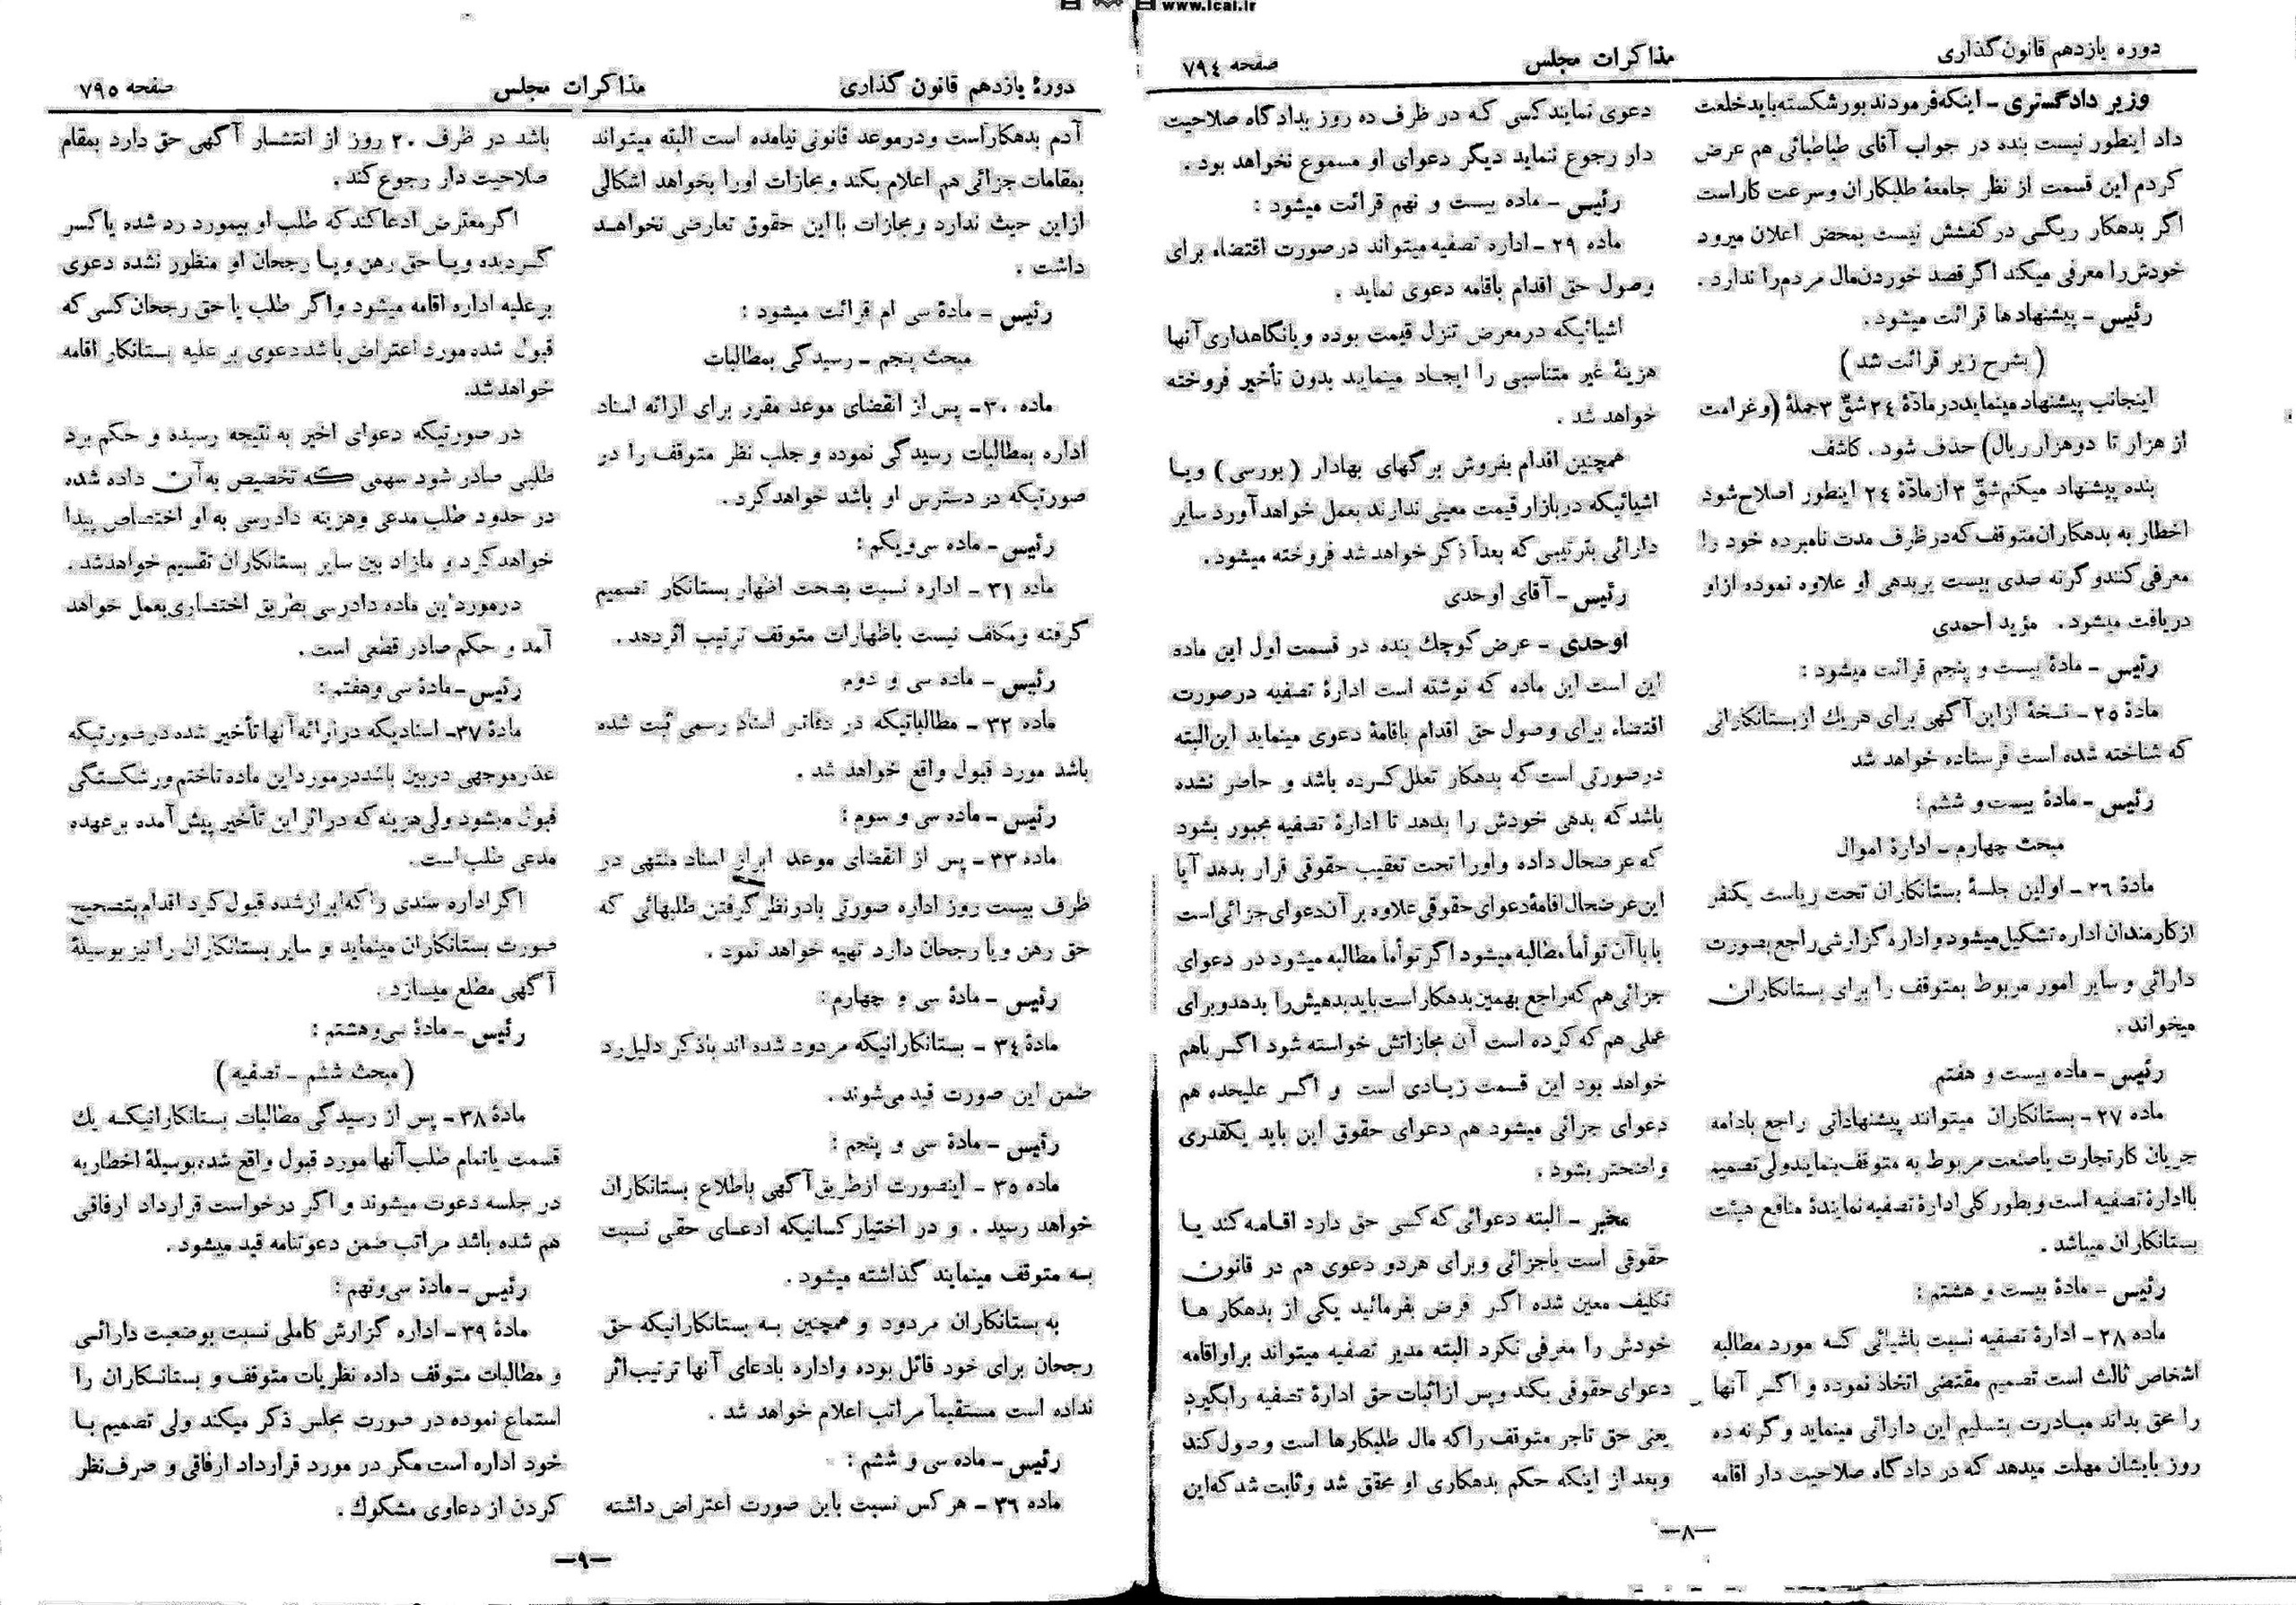 www.ical.ir
دوره یازدهم قانون‌گذاری
مذاکرات مجلس
صفحه ۷۹٤
وزیر دادگستری ـ اینکه فرمودند بورشکسته باید خلعت
داد اینطور نیست بنده در جواب آقای طباطبائی هم عرض
کردم این قسمت از نظر جامعهٔ طلبکاران و سرعت کار است
اگر بدهکار ریگی در کفشش نیست بمحض اعلان میرود
خودش را معرفی میکند اگر قصد خوردن مال مردم را ندارد .
رئیس ـ پیشنهادها قرائت میشود .
( بشرح زیر قرائت شد )
اینجانب پیشنهاد مینماید در مادّهٔ ۲٤ شقّ ۳ جملهٔ (و غرامت
از هزار تا دو هزار ریال) حذف شود . کاشف
بنده پیشنهاد میکنم شقّ ۳ از مادّهٔ ۲٤ اینطور اصلاح شود
اخطار به بدهکاران متوقف که در ظرف مدت نامبرده خود را
معرفی کنند و گرنه صدی بیست بر بدهی او علاوه نموده از او
دریافت میشود . مؤید احمدی
رئیس ـ مادهٔ بیست و پنجم قرائت میشود :
مادهٔ ۲۵ ـ نسخهٔ از این آگهی برای هر یك از بستانکارانی
که شناخته شده است فرستاده خواهد شد
رئیس ـ مادهٔ بیست و ششم :
مبحث چهارم ـ ادارهٔ اموال
مادهٔ ۲٦ ـ اولین جلسهٔ بستانکاران تحت ریاست یکنفر
از کارمندان اداره تشکیل میشود و اداره گزارشی راجع بصورت
دارائی و سایر امور مربوط بمتوقف را برای بستانکاران
میخواند .
رئیس ـ ماده بیست و هفتم
ماده ۲۷ ـ بستانکاران میتوانند پیشنهاداتی راجع بادامه
جریان کار تجارت یا صنعت مربوط به متوقف بنمایند ولی تصمیم
با ادارهٔ تصفیه است و بطور کلی ادارهٔ تصفیه نمایندهٔ منافع هیئت
بستانکاران میباشد .
رئیس ـ مادهٔ بیست و هشتم :
ماده ۲۸ ـ ادارهٔ تصفیه نسبت باشیائی کـه مورد مطالبه
اشخاص ثالث است تصمیم مقتضی اتخاذ نموده و اگـر آنها
را محق بداند مبـادرت بتسلیم این دارائی مینماید و گرنه ده
روز بایشان مهلت میدهد که در دادگاه صلاحیت دار اقامه
دعوی نمایند کسی که در ظرف ده روز بدادگاه صلاحیت
دار رجوع ننماید دیگر دعوای او مسموع نخواهد بود .
رئیس ـ ماده بیست و نهم قرائت میشود :
ماده ۲۹ ـ اداره تصفیه میتواند در صورت اقتضاء برای
وصول حق اقدام باقامه دعوی نماید .
اشیائیکه در معرض تنزل قیمت بوده و یا نگاهداری آنها
هزینهٔ غیر متناسبی را ایجـاد مینماید بدون تأخیر فروخته
خواهد شد .
همچنین اقدام بفروش برگهای بهادار ( بورسی ) ویـا
اشیائیکه در بازار قیمت معینی ندارند بعمل خواهد آورد سایر
دارائی بترتیبی که بعداً ذکر خواهد شد فروخته میشود .
رئیس ـ آقای اوحدی
اوحدی ـ عرض کوچك بنده در قسمت اول این ماده
این است این ماده که نوشته است ادارهٔ تصفیه در صورت
اقتضاء برای وصول حق اقدام باقامهٔ دعوی مینماید این البته
در صورتی است که بدهکار تعلل کـرده باشد و حاضر نشده
باشد که بدهی خودش را بدهد تا ادارهٔ تصفیه مجبور بشود
که عرضحال داده و او را تحت تعقیب حقوقی قرار بدهد آیا
این عرضحال اقامهٔ دعوای حقوقی علاوه بر آن دعوای جزائی است
یا با آن توأماً مطالبه میشود اگر توأماً مطالبه میشود در دعوای
جزائی هم که راجع بهمین بدهکار است باید بدهیش را بدهد و برای
عملی هم که کرده است آن مجازاتش خواسته شود اگـر باهم
خواهد بود این قسمت زیـادی است و اگـر علیحده هم
دعوای جزائی میشود هم دعوای حقوق این باید یکقدری
واضحتر بشود .
مخبر ـ البته دعوائی که کسی حق دارد اقـامه کند یـا
حقوقی است یا جزائی و برای هر دو دعوی هم در قانون
تکلیف معین شده اگـر فرض بفرمائید یکی از بدهکار هـا
خودش را معرفی نکرد البته مدیر تصفیه میتواند بر او اقامه
دعوای حقوقی بکند و پس از اثبات حق ادارهٔ تصفیه را بگیرد
یعنی حق تاجر متوقف را که مال طلبکارها است وصول کند
و بعد از اینکه حکم بدهکاری او محقق شد و ثابت شد که این
—۸—
دورهٔ یازدهم قانون گذاری
مذاکرات مجلس
صفحه ۷۹٥
آدم بدهکار است و در موعد قانونی نیامده است البته میتواند
بمقامات جزائی هم اعلام بکند و مجازات او را بخواهد اشکالی
از این حیث ندارد و مجازات با این حقوق تعارضی نخواهـد
داشت .
رئیس ـ مادهٔ سی ام قرائت میشود :
مبحث پنجم ـ رسیدگی بمطالبات
ماده ۳۰ ـ پس از انقضای موعد مقرر برای ارائه اسناد
اداره بمطالبات رسیدگی نموده و جلب نظر متوقف را در
صورتیکه در دسترس او باشد خواهد کرد .
رئیس ـ ماده سی و یکم :
ماده ۳۱ ـ اداره نسبت بصحت اظهار بستانکار تصمیم
گرفته و مکلف نیست باظهارات متوقف ترتیب اثر دهد .
رئیس ـ ماده سی و دوم
ماده ۳۲ ـ مطالباتیکه در دفاتر اسناد رسمی ثبت شده
باشد مورد قبول واقع خواهد شد .
رئیس ـ ماده سی و سوم :
ماده ۳۳ ـ پس از انقضای موعد ابراز اسناد منتهی در
ظرف بیست روز اداره صورتی با در نظر گرفتن طلبهائی که
حق رهن و یا رجحان دارد تهیه خواهد نمود .
رئیس ـ مادهٔ سی و چهارم :
مادهٔ ۳٤ ـ بستانکارانیکه مردود شده اند با ذکر دلیل رد
ضمن این صورت قید می‌شوند .
رئیس ـ مادهٔ سی و پنجم :
ماده ۳٥ ـ اینصورت از طریق آگهی باطلاع بستانکاران
خواهد رسید . و در اختیار کسانیکه ادعـای حقی نسبت
بـه متوقف مینمایند گذاشته میشود .
به بستانکاران مردود و همچنین بـه بستانکارانیکه حق
رجحان برای خود قائل بوده و اداره بادعای آنها ترتیب اثر
نداده است مستقیماً مراتب اعلام خواهد شد .
رئیس ـ ماده سی و ششم :
ماده ۳٦ ـ هر کس نسبت باین صورت اعتراض داشته
باشد در ظرف ۲۰ روز از انتشـار آگهی حق دارد بمقام
صلاحیت دار رجوع کند .
اگر معترض ادعا کند که طلب او بیمورد رد شده یا کسر
گـردیده ویـا حق رهن ویـا رجحان او منظور نشده دعوی
بر علیه اداره اقامه میشود و اگر طلب یا حق رجحان کسی که
قبول شده مورد اعتراض باشد دعوی بر علیه بستانکار اقامه
خواهد شد.
در صورتیکه دعوای اخیر به نتیجه رسیده و حکم برد
طلبی صادر شود سهمی که تخصیص به آن داده شده
در حدود طلب مدعی و هزینه دادرسی به او اختصاص پیدا
خواهد کرد و مازاد بین سایر بستانکاران تقسیم خواهد شد .
در مورد این ماده دادرسی بطریق اختصاری بعمل خواهد
آمد و حکم صادر قطعی است .
رئیس ـ مادهٔ سی و هفتم :
مادهٔ ۳۷ ـ اسنادیکه در ارائه آنها تأخیر شده در صورتیکه
عذر موجهی در بین باشد در مورد این ماده تا ختم ورشکستگی
قبول میشود ولی هزینه که در اثر این تأخیر پیش آمده بر عهده
مدعی طلب است .
اگر اداره سندی را که ابراز شده قبول کرد اقدام بتصحیح
صورت بستانکاران مینماید و سایر بستانکاران را نیز بوسیلهٔ
آگهی مطلع میسازد .
رئیس ـ مادهٔ سی و هشتم :
( مبحث ششم ـ تصفیه )
مادهٔ ۳۸ ـ پس از رسیدگی مطالبات بستانکارانیکـه یك
قسمت یا تمام طلب آنها مورد قبول واقع شده بوسیلهٔ اخطاریه
در جلسه دعوت میشوند و اگر درخواست قرارداد ارفاقی
هم شده باشد مراتب ضمن دعوتنامه قید میشود .
رئیس ـ مادهٔ سی و نهم :
مادهٔ ۳۹ ـ اداره گزارش کاملی نسبت بوضعیت دارائـی
و مطالبات متوقف داده نظریات متوقف و بستانکاران را
استماع نموده در صورت مجلس ذکر میکند ولی تصمیم بـا
خود اداره است مگر در مورد قرارداد ارفاقی و صرف‌نظر
کردن از دعاوی مشکوك .
—۹—